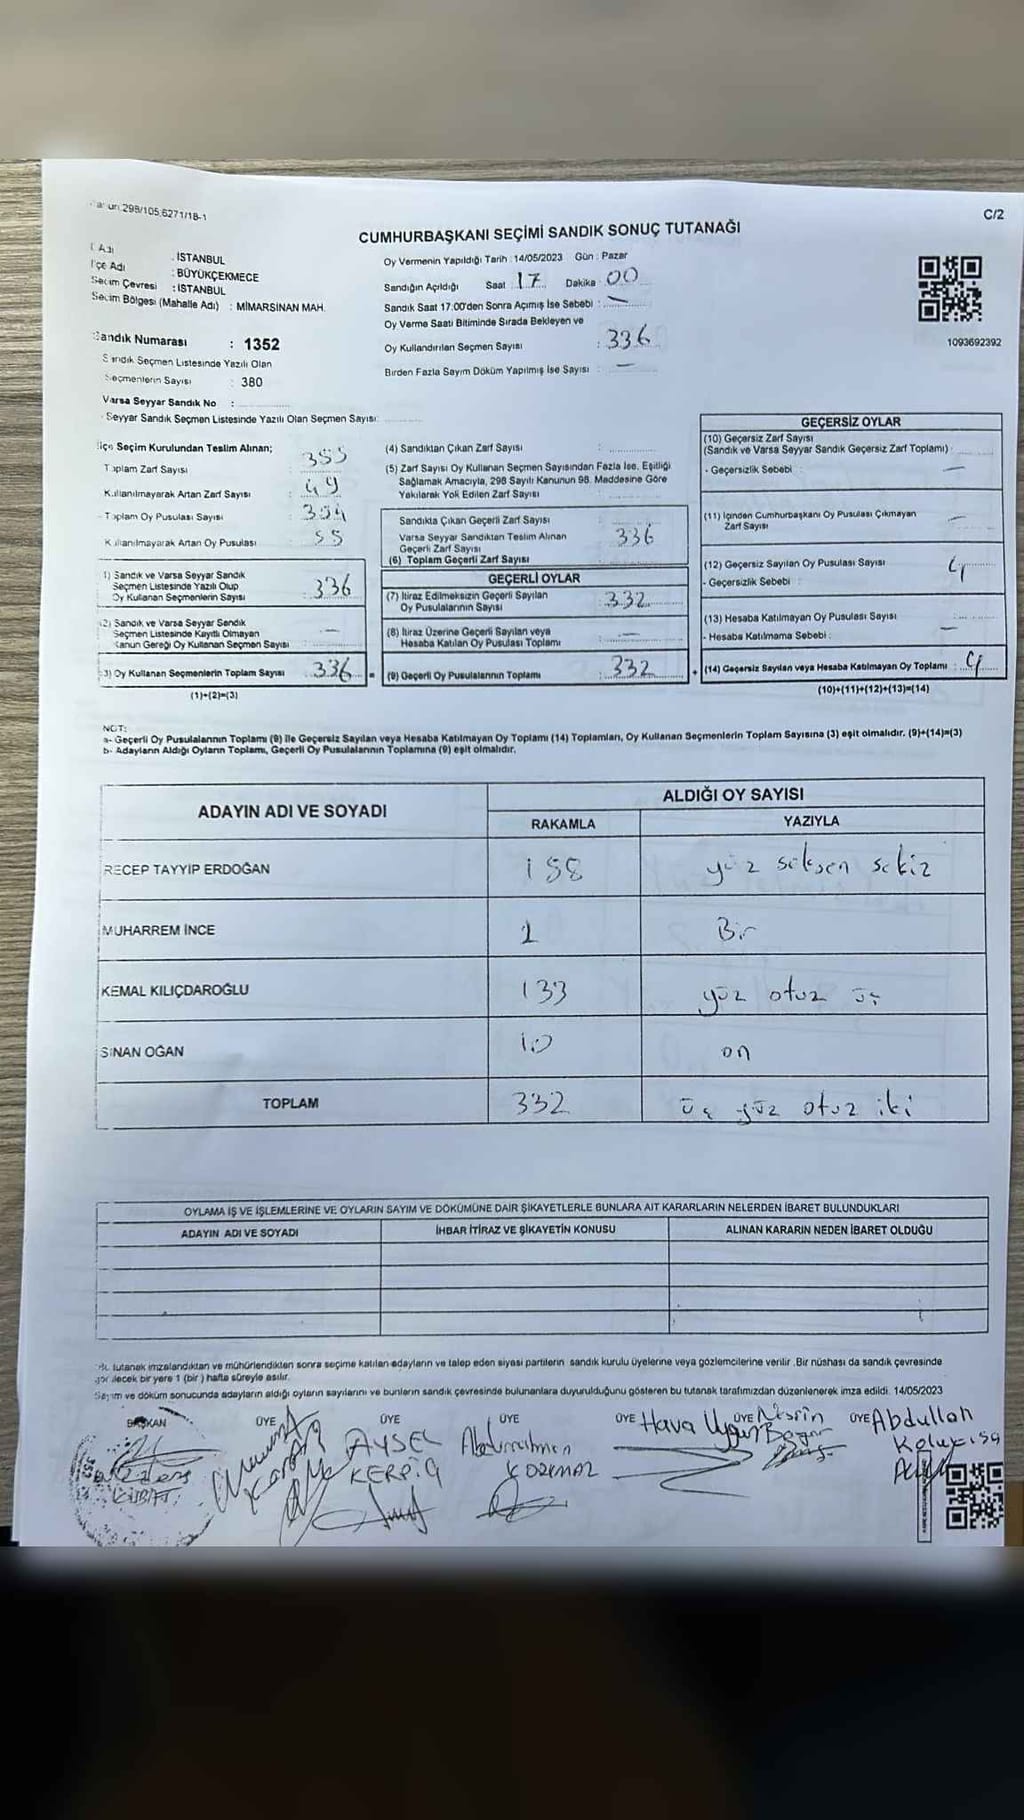 298/105.6271/18-1
C/2
CUMHURBAŞKANI SEÇİMİ SANDIK SONUÇ TUTANAĞI
Adı : İSTANBUL
İlçe Adı : BÜYÜKÇEKMECE
Seçim Çevresi : İSTANBUL
Seçim Bölgesi (Mahalle Adı) : MİMARSİNAN MAH.
Sandık Numarası : 1352
Sandık Seçmen Listesinde Yazılı Olan
Seçmenlerin Sayısı : 380
Varsa Seyyar Sandık No :
Seyyar Sandık Seçmen Listesinde Yazılı Olan Seçmen Sayısı:
Oy Vermenin Yapıldığı Tarih : 14/05/2023 Gün : Pazar
Sandığın Açıldığı Saat : 17 Dakika : 00
Sandık Saat 17.00'den Sonra Açılmış İse Sebebi : —
Oy Verme Saati Bitiminde Sırada Bekleyen ve
Oy Kullandırılan Seçmen Sayısı : 336
Birden Fazla Sayım Döküm Yapılmış İse Sayısı : —
1093692392
İlçe Seçim Kurulundan Teslim Alınan;
Toplam Zarf Sayısı : 385
Kullanılmayarak Artan Zarf Sayısı : 49
- Toplam Oy Pusulası Sayısı :
Kullanılmayarak Artan Oy Pusulası : 55
1) Sandık ve Varsa Seyyar Sandık
Seçmen Listesinde Yazılı Olup
Oy Kullanan Seçmenlerin Sayısı : 336
(2) Sandık ve Varsa Seyyar Sandık
Seçmen Listesinde Kayıtlı Olmayan
Kanun Gereği Oy Kullanan Seçmen Sayısı : —
(3) Oy Kullanan Seçmenlerin Toplam Sayısı : 336
(1)+(2)=(3)
(4) Sandıktan Çıkan Zarf Sayısı :
(5) Zarf Sayısı Oy Kullanan Seçmen Sayısından Fazla İse, Eşitliği
Sağlamak Amacıyla, 298 Sayılı Kanunun 98. Maddesine Göre
Yakılarak Yok Edilen Zarf Sayısı :
Sandıkta Çıkan Geçerli Zarf Sayısı
Varsa Seyyar Sandıktan Teslim Alınan
Geçerli Zarf Sayısı
(6) Toplam Geçerli Zarf Sayısı : 336
GEÇERLİ OYLAR
(7) İtiraz Edilmeksizin Geçerli Sayılan
Oy Pusulalarının Sayısı : 332
(8) İtiraz Üzerine Geçerli Sayılan veya
Hesaba Katılan Oy Pusulası Toplamı : —
= (9) Geçerli Oy Pusulalarının Toplamı : 332
GEÇERSİZ OYLAR
(10) Geçersiz Zarf Sayısı
(Sandık ve Varsa Seyyar Sandık Geçersiz Zarf Toplamı) :
- Geçersizlik Sebebi : —
(11) İçinden Cumhurbaşkanı Oy Pusulası Çıkmayan
Zarf Sayısı : —
(12) Geçersiz Sayılan Oy Pusulası Sayısı : 4
- Geçersizlik Sebebi :
(13) Hesaba Katılmayan Oy Pusulası Sayısı :
- Hesaba Katılmama Sebebi : —
+ (14) Geçersiz Sayılan veya Hesaba Katılmayan Oy Toplamı : 4
(10)+(11)+(12)+(13)=(14)
NOT:
a- Geçerli Oy Pusulalarının Toplamı (9) ile Geçersiz Sayılan veya Hesaba Katılmayan Oy Toplamı (14) Toplamları, Oy Kullanan Seçmenlerin Toplam Sayısına (3) eşit olmalıdır. (9)+(14)=(3)
b- Adayların Aldığı Oyların Toplamı, Geçerli Oy Pusulalarının Toplamına (9) eşit olmalıdır.
ADAYIN ADI VE SOYADI
ALDIĞI OY SAYISI
RAKAMLA YAZIYLA
RECEP TAYYİP ERDOĞAN 188 yüz seksen sekiz
MUHARREM İNCE 1 Bir
KEMAL KILIÇDAROĞLU 133 yüz otuz üç
SİNAN OĞAN 10 on
TOPLAM 332 üç yüz otuz iki
OYLAMA İŞ VE İŞLEMLERİNE VE OYLARIN SAYIM VE DÖKÜMÜNE DAİR ŞİKAYETLERLE BUNLARA AİT KARARLARIN NELERDEN İBARET BULUNDUKLARI
ADAYIN ADI VE SOYADI İHBAR İTİRAZ VE ŞİKAYETİN KONUSU ALINAN KARARIN NEDEN İBARET OLDUĞU
Bu tutanak imzalandıktan ve mühürlendikten sonra seçime katılan adayların ve talep eden siyasi partilerin sandık kurulu üyelerine veya gözlemcilerine verilir. Bir nüshası da sandık çevresinde
görülecek bir yere 1 (bir) hafta süreyle asılır.
Sayım ve döküm sonucunda adayların aldığı oyların sayılarını ve bunların sandık çevresinde bulunanlara duyurulduğunu gösteren bu tutanak tarafımızdan düzenlenerek imza edildi. 14/05/2023
BAŞKAN ÜYE ÜYE ÜYE ÜYE ÜYE ÜYE
AYSEL
KERPİÇ
Abdurrahman
KORKMAZ
Hava Uygun
Nisrin
Abdullah